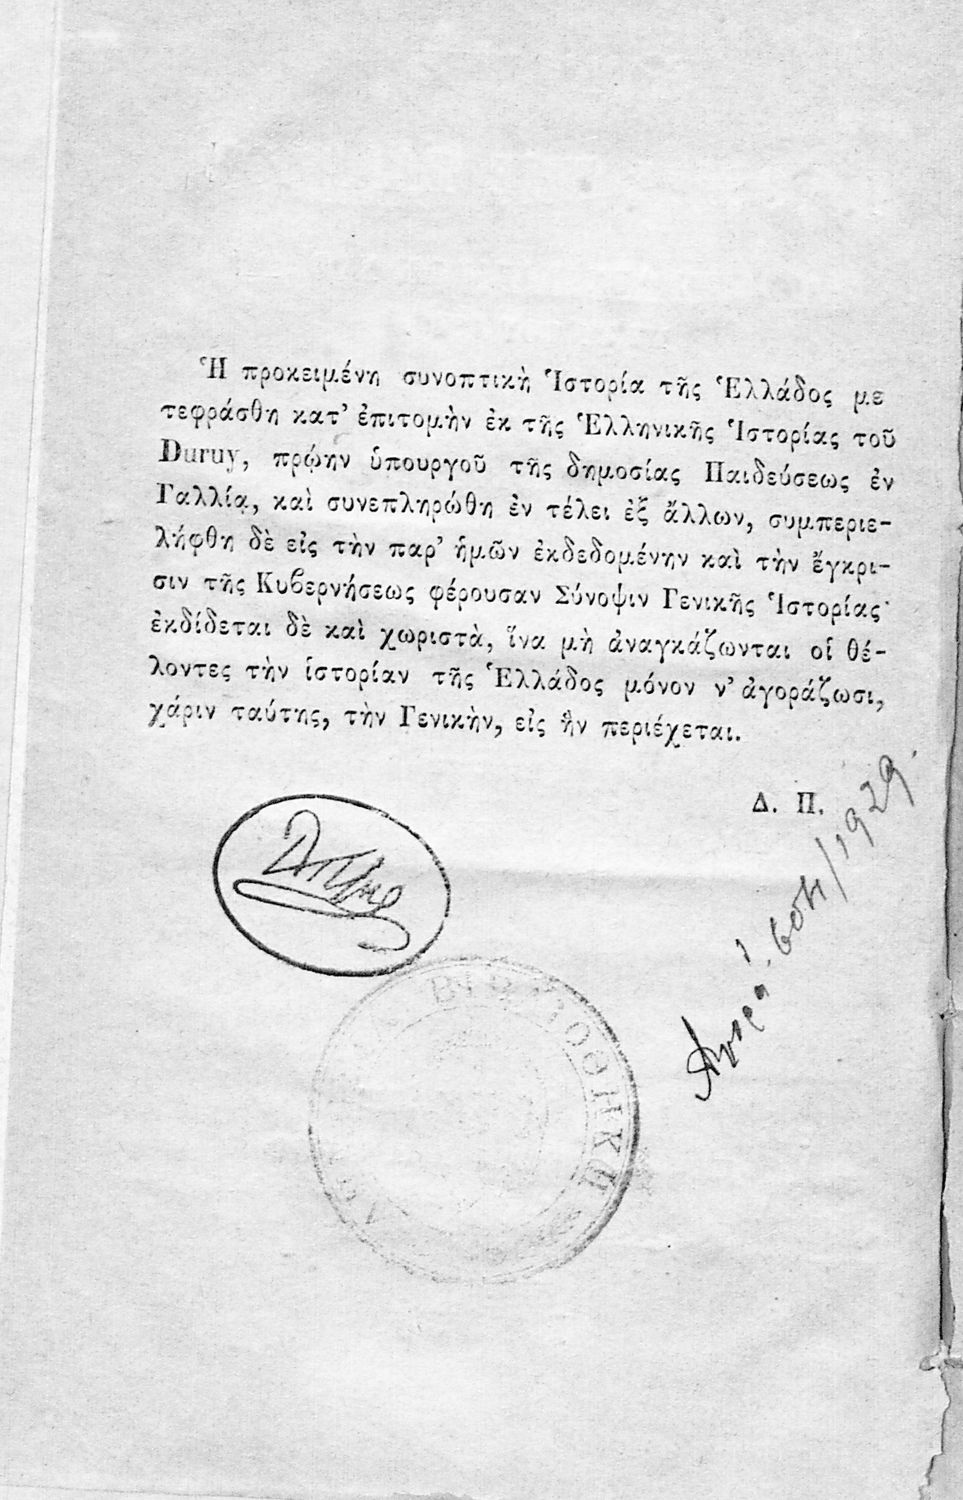 Ἡ προκειμένη συνοπτικὴ Ἱστορία τῆς Ἑλλάδος με
τεφράσθη κατ’ ἐπιτομὴν ἐκ τῆς Ἑλληνικῆς Ἱστορίας τοῦ
Duruy, πρῴην ὑπουργοῦ τῆς δημοσίας Παιδεύσεως ἐν
Γαλλίᾳ, καὶ συνεπληρώθη ἐν τέλει ἐξ ἄλλων, συμπεριε-
λήφθη δὲ εἰς τὴν παρ’ ἡμῶν ἐκδεδομένην καὶ τὴν ἔγκρι-
σιν τῆς Κυβερνήσεως φέρουσαν Σύνοψιν Γενικῆς Ἱστορίας·
ἐκδίδεται δὲ καὶ χωριστὰ, ἵνα μὴ ἀναγκάζωνται οἱ θέ-
λοντες τὴν ἱστορίαν τῆς Ἑλλάδος μόνον ν’ ἀγοράζωσι,
χάριν ταύτης, τὴν Γενικὴν, εἰς ἣν περιέχεται.
Δ. Π.
/1929.
ΒΙΒΛΙΟΘΗΚΗ